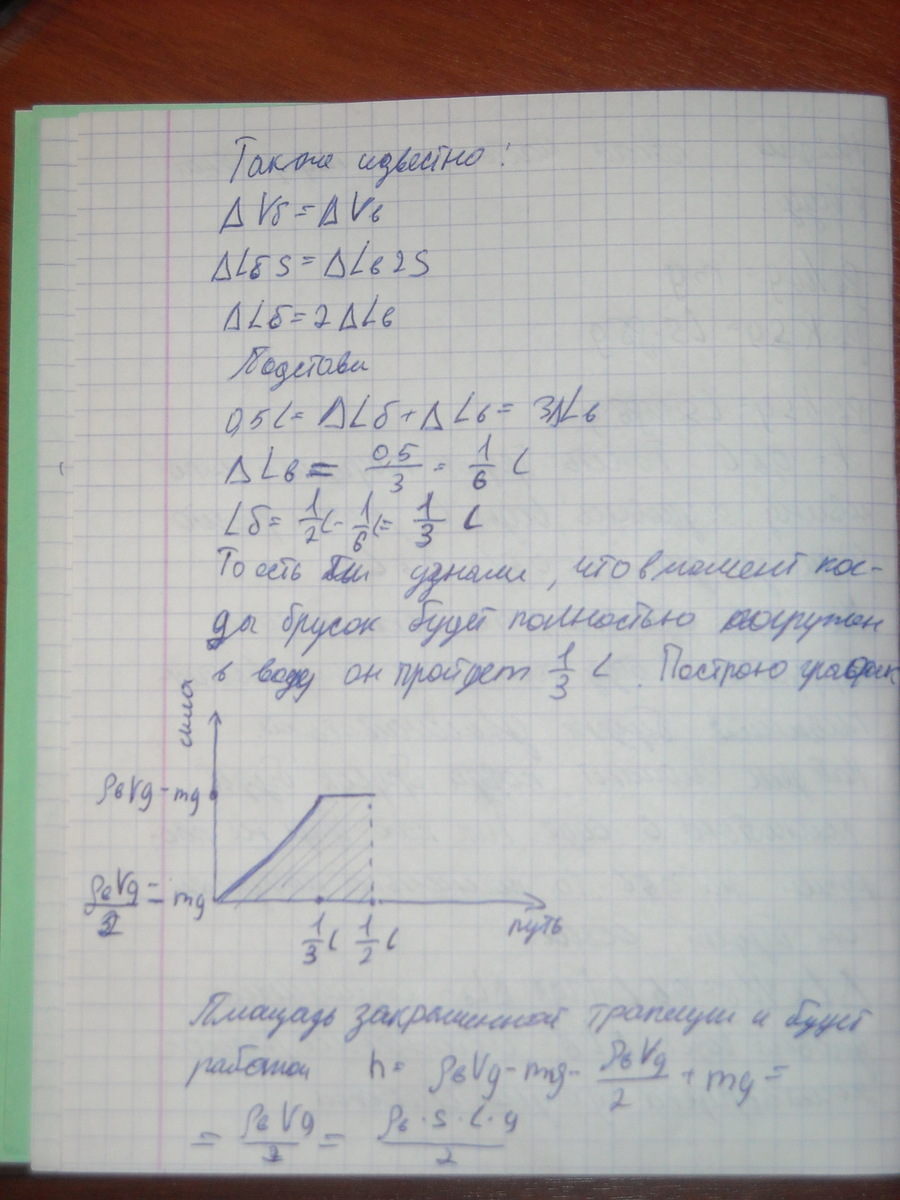 Также известно:
ΔVб = ΔVв
ΔLб S = ΔLв 2S
ΔLб = 2ΔLв
Подстави
0,5L = ΔLб + ΔLв = 3ΔLв
ΔLв = 0,5/3 = 1/6 L
Lб = 1/2 L - 1/6 L = 1/3 L
То есть узнали, что в момент ког-
ды брусок будет полностью погружен
в воду он пройдет 1/3 L. Построю график
сила
ρвVg - mg
ρвVg/2 = mg
1/3 L 1/2 L
путь
Площадь закрашенной трапеции и будет
работой h = ρвVg - mg - ρвVg/2 + mg =
= ρвVg/2 = ρв·S·L·g/2